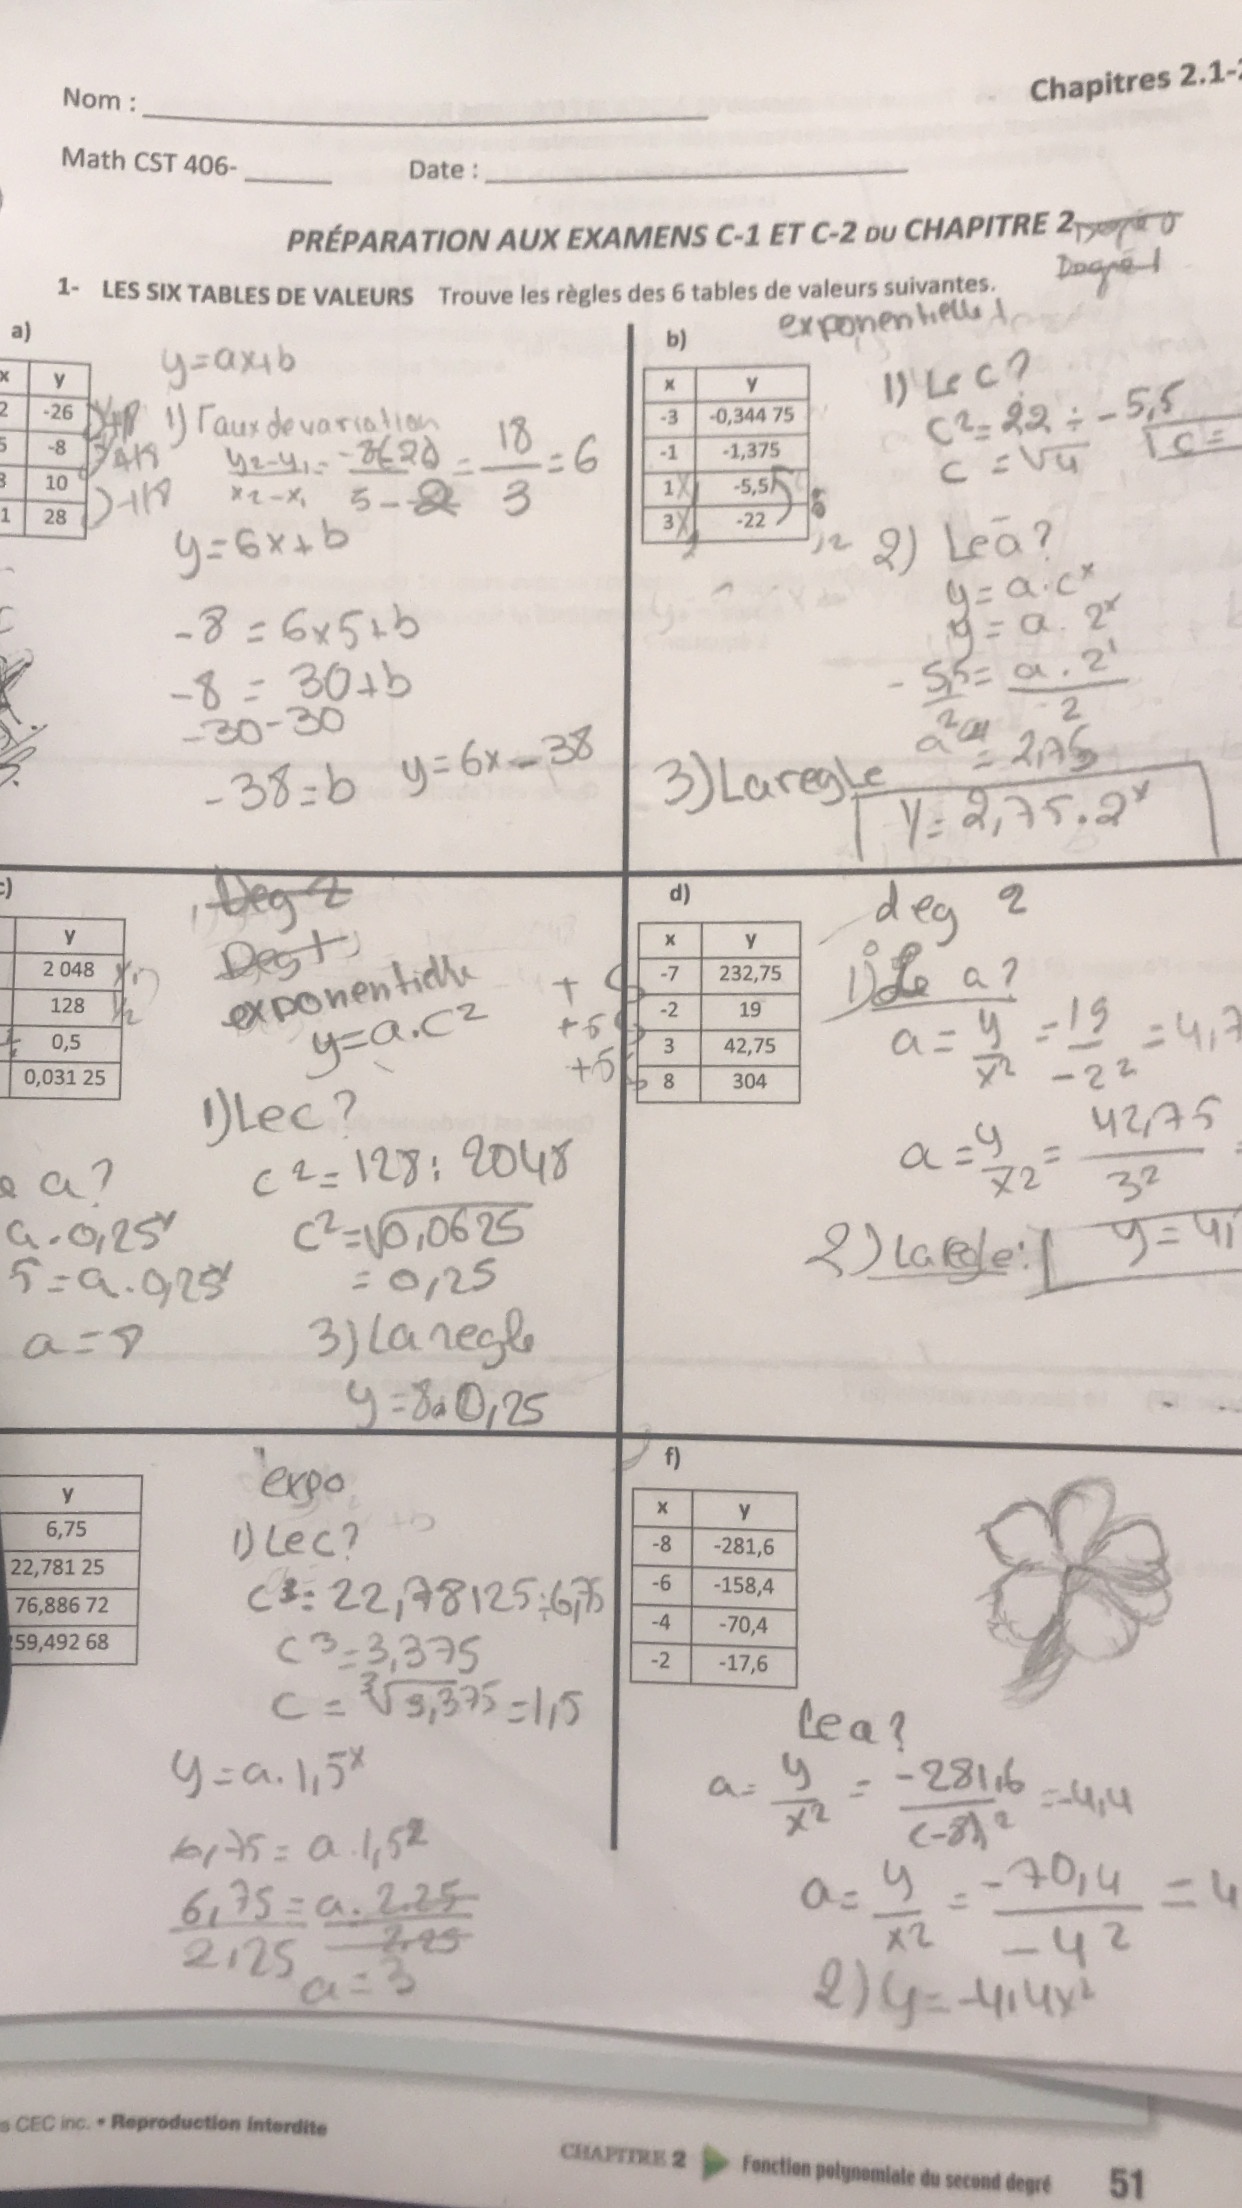 Chapitres 2.1-
Nom :
Math CST 406-
Date :
PRÉPARATION AUX EXAMENS C-1 ET C-2 DU CHAPITRE 2
Degré 1
1- LES SIX TABLES DE VALEURS Trouve les règles des 6 tables de valeurs suivantes.
exponentielle
a)
x y
2 -26
5 -8
8 10
1 28
y=ax+b
1) Taux de variation
y2-y1
x2-x1
= 18
3 = 6
y=6x+b
-8 = 6x5+b
-8 = 30+b
-30 -30
-38=b y=6x-38
b)
x y
-3 -0,344 75
-1 -1,375
1 -5,5
3 -22
1) Le c?
c²=22 ÷ -5,5
c = √4 c =
2) Le a?
y=a.c^x
y=a.2^x
-5,5= a.2^1
2 2
= 2,75
3) La regle
y=2,75.2^x
c)
y
2 048
128
0,5
0,031 25
Deg 2
Deg 1
exponentielle
y=a.c²
1) Le c?
c²=128:2048
c²=√0,0625
= 0,25
a?
a.0,25^x
5=a.0,25
a=8
3) La regle
y=8.0,25
d)
x y
-7 232,75
-2 19
3 42,75
8 304
+5
+5
deg 2
1) Le a?
a= y = 19 = 4,7
x² -2²
a= y = 42,75
x² 3²
2) La regle: y=4,
y
6,75
22,781 25
76,886 72
59,492 68
expo
1) Le c?
c³=22,78125÷6,75
c³=3,375
c=³√3,375=1,5
y=a.1,5^x
6,75=a.1,5²
6,75=a.2.25
2,25 2.25
a=3
f)
x y
-8 -281,6
-6 -158,4
-4 -70,4
-2 -17,6
Le a?
a= y = -281,6 =-4,4
x² (-8)²
a= y = -70,4 = 4
x² -4²
2) y=-4,4x²
CEC inc. • Reproduction interdite
CHAPITRE 2 ▶ Fonction polynomiale du second degré 51